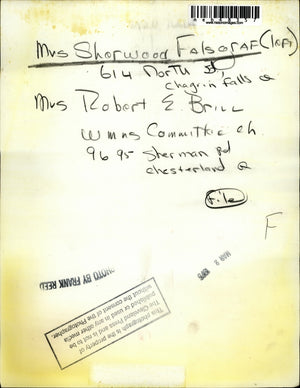 Mrs Sherwood Falsgraf (left)
614 North St,
Chagrin Falls O
Mrs Robert E. Brill
Wmns Committee ch.
9695 Sherman Rd
Chesterland O
File
F
MAR 3
PHOTO BY FRANK REED
This photograph is the property of
The Cleveland Press and is not to be
published or used in any other media
without the consent of the Photographer.